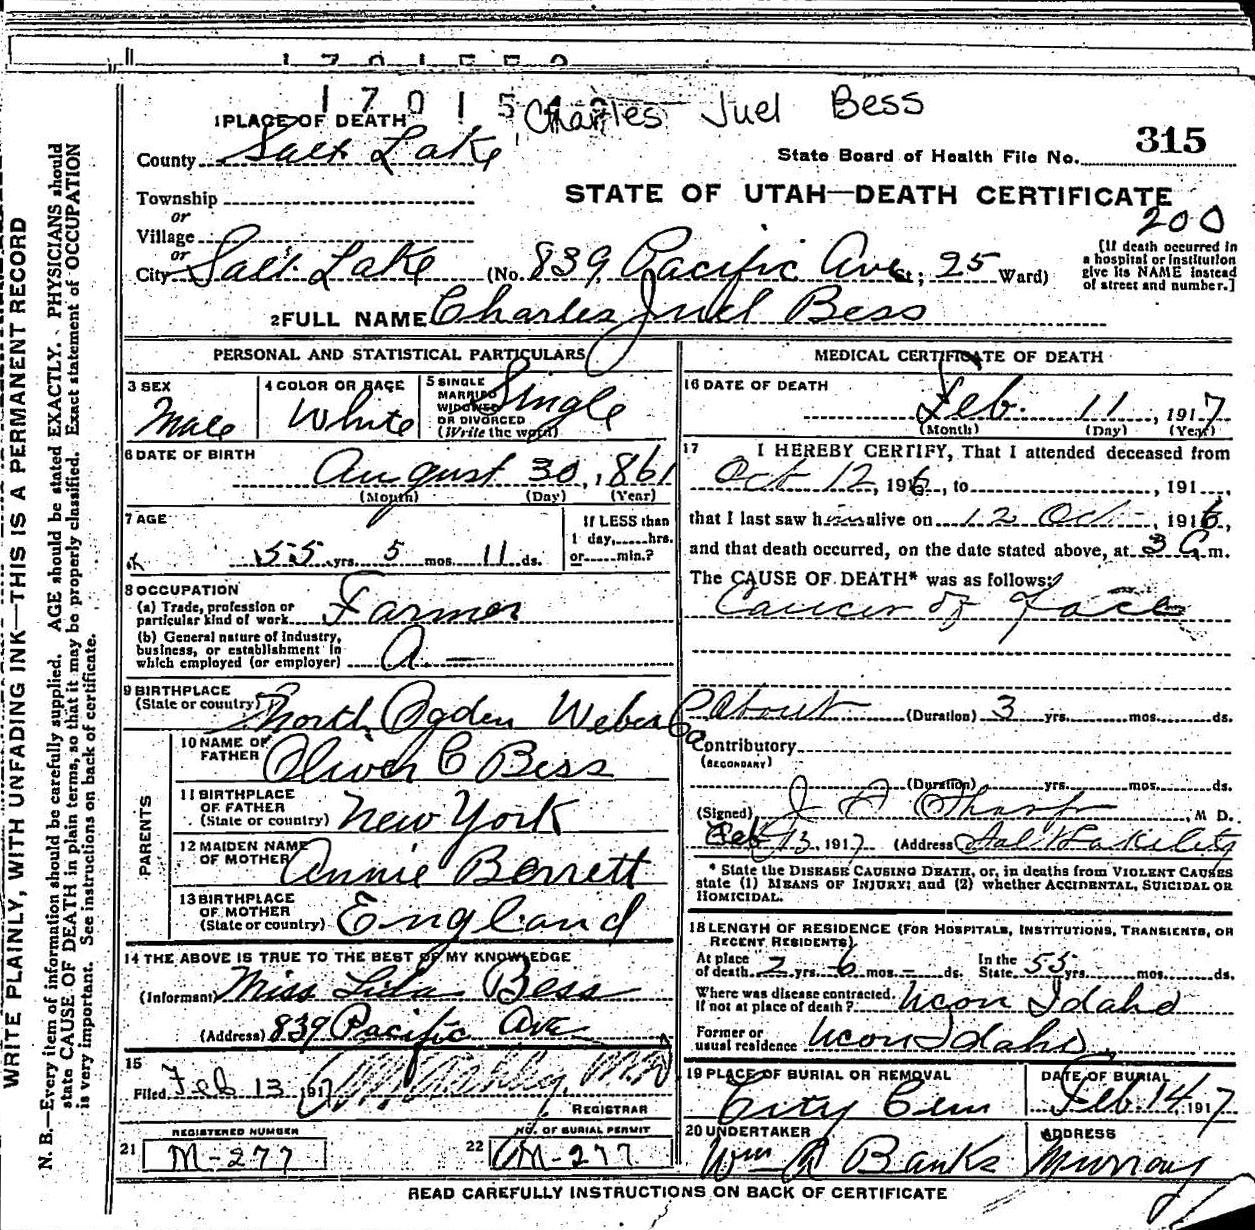 1 7 0 1 5 5 2
1 7 0 1 5
Charles Juel Bess
1 PLACE OF DEATH
County Salt Lake
State Board of Health File No. 315
Township
or
Village
or
STATE OF UTAH—DEATH CERTIFICATE
200
City Salt Lake (No. 839 Pacific Ave St; 25 Ward)
[If death occurred in a hospital or institution give its NAME instead of street and number.]
2 FULL NAME Charles Juel Bess
PERSONAL AND STATISTICAL PARTICULARS
3 SEX
Male
4 COLOR OR RACE
White
5 SINGLE
MARRIED
WIDOWED
OR DIVORCED
(Write the word)
Single
6 DATE OF BIRTH
August 30, 1861
(Month) (Day) (Year)
7 AGE
55 yrs. 5 mos. 11 ds.
If LESS than
1 day,......hrs.
or......min.?
8 OCCUPATION
(a) Trade, profession or
particular kind of work Farmer
(b) General nature of industry,
business, or establishment in
which employed (or employer) a —
9 BIRTHPLACE
(State or country) North Ogden Weber Co
PARENTS
10 NAME OF
FATHER Oliver C Bess
11 BIRTHPLACE
OF FATHER
(State or country) New York
12 MAIDEN NAME
OF MOTHER Annie Borrett
13 BIRTHPLACE
OF MOTHER
(State or country) England
14 THE ABOVE IS TRUE TO THE BEST OF MY KNOWLEDGE
(Informant) Miss Lula Bess
(Address) 839 Pacific Ave
15
Filed Feb 13, 1917 M.D
REGISTRAR
REGISTERED NUMBER
21 M-277
NO. OF BURIAL PERMIT
22 M-277
MEDICAL CERTIFICATE OF DEATH
16 DATE OF DEATH
Feb. 11, 1917
(Month) (Day) (Year)
17 I HEREBY CERTIFY, That I attended deceased from
Oct 12, 1916, to , 191 ,
that I last saw him alive on 12 Oct , 1916,
and that death occurred, on the date stated above, at 3 A m.
The CAUSE OF DEATH* was as follows:
Cancer of Face
About (Duration) 3 yrs. mos. ds.
Contributory
(SECONDARY)
(Duration) yrs. mos. ds.
(Signed) J F Sharp, M D.
Feb 13, 1917 (Address) Salt Lake City
* State the DISEASE CAUSING DEATH, or, in deaths from VIOLENT CAUSES
state (1) MEANS OF INJURY; and (2) whether ACCIDENTAL, SUICIDAL OR
HOMICIDAL.
18 LENGTH OF RESIDENCE (FOR HOSPITALS, INSTITUTIONS, TRANSIENTS, OR
RECENT RESIDENTS)
At place
of death 2 yrs 6 mos. - ds.
In the
State 55 yrs. mos. ds.
Where was disease contracted.
If not at place of death? Ucon Idaho
Former or
usual residence Ucon Idaho
19 PLACE OF BURIAL OR REMOVAL
City Cem
DATE OF BURIAL
Feb. 14, 1917
20 UNDERTAKER
Wm R Banks
ADDRESS
Murray
READ CAREFULLY INSTRUCTIONS ON BACK OF CERTIFICATE
WRITE PLAINLY, WITH UNFADING INK—THIS IS A PERMANENT RECORD
N. B.—Every item of information should be carefully supplied. AGE should be stated EXACTLY. PHYSICIANS should
state CAUSE OF DEATH in plain terms, so that it may be properly classified. Exact statement of OCCUPATION
is very important. See instructions on back of certificate.